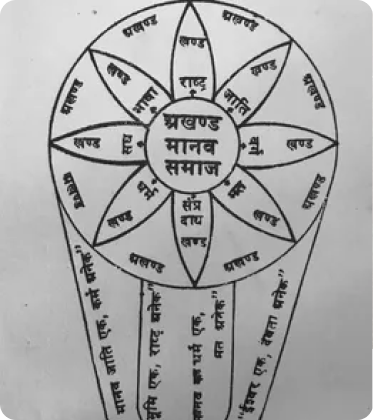 अखण्ड
मानव
समाज
राष्ट्र
खण्ड
अखण्ड
जाति
खण्ड
अखण्ड
वर्ग
खण्ड
अखण्ड
मत
खण्ड
अखण्ड
संप्र
दाय
खण्ड
अखण्ड
धर्म
खण्ड
अखण्ड
खण्ड
अखण्ड
भाषा
खण्ड
अखण्ड
मानव जाति एक, कर्म अनेक"
भूमि एक, राष्ट्र अनेक"
धर्म एक,
मत अनेक"
"ईश्वर एक, देवता अनेक"